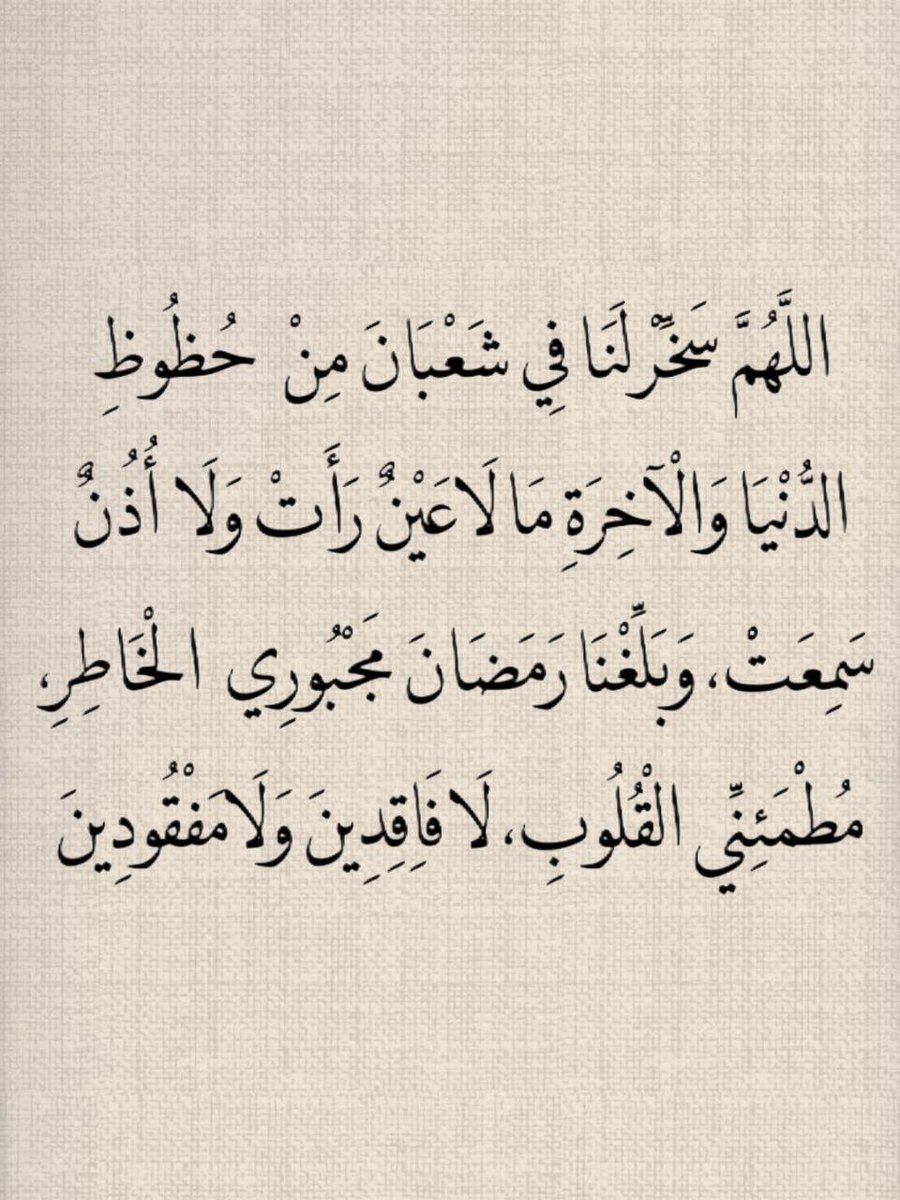 اللَّهُمَّ سَخِّرْ لَنَا فِي شَعْبَانَ مِنْ حُظُوظِ
الدُّنْيَا وَالْآخِرَةِ مَا لَا عَيْنٌ رَأَتْ وَلَا أُذُنٌ
سَمِعَتْ، وَبَلِّغْنَا رَمَضَانَ مَجْبُورِي الْخَاطِرِ،
مُطْمَئِنِّي الْقُلُوبِ، لَا فَاقِدِينَ وَلَا مَفْقُودِينَ